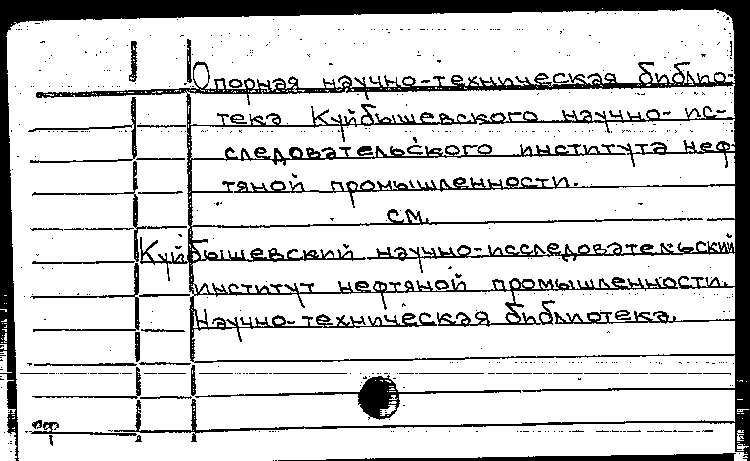 Опорная научно-техническая библио-
тека Куйбышевского научно-ис-
следовательского института неф-
тяной промышленности.
см.
Куйбышевский научно-исследовательский
институт нефтяной промышленности.
Научно-техническая библиотека.